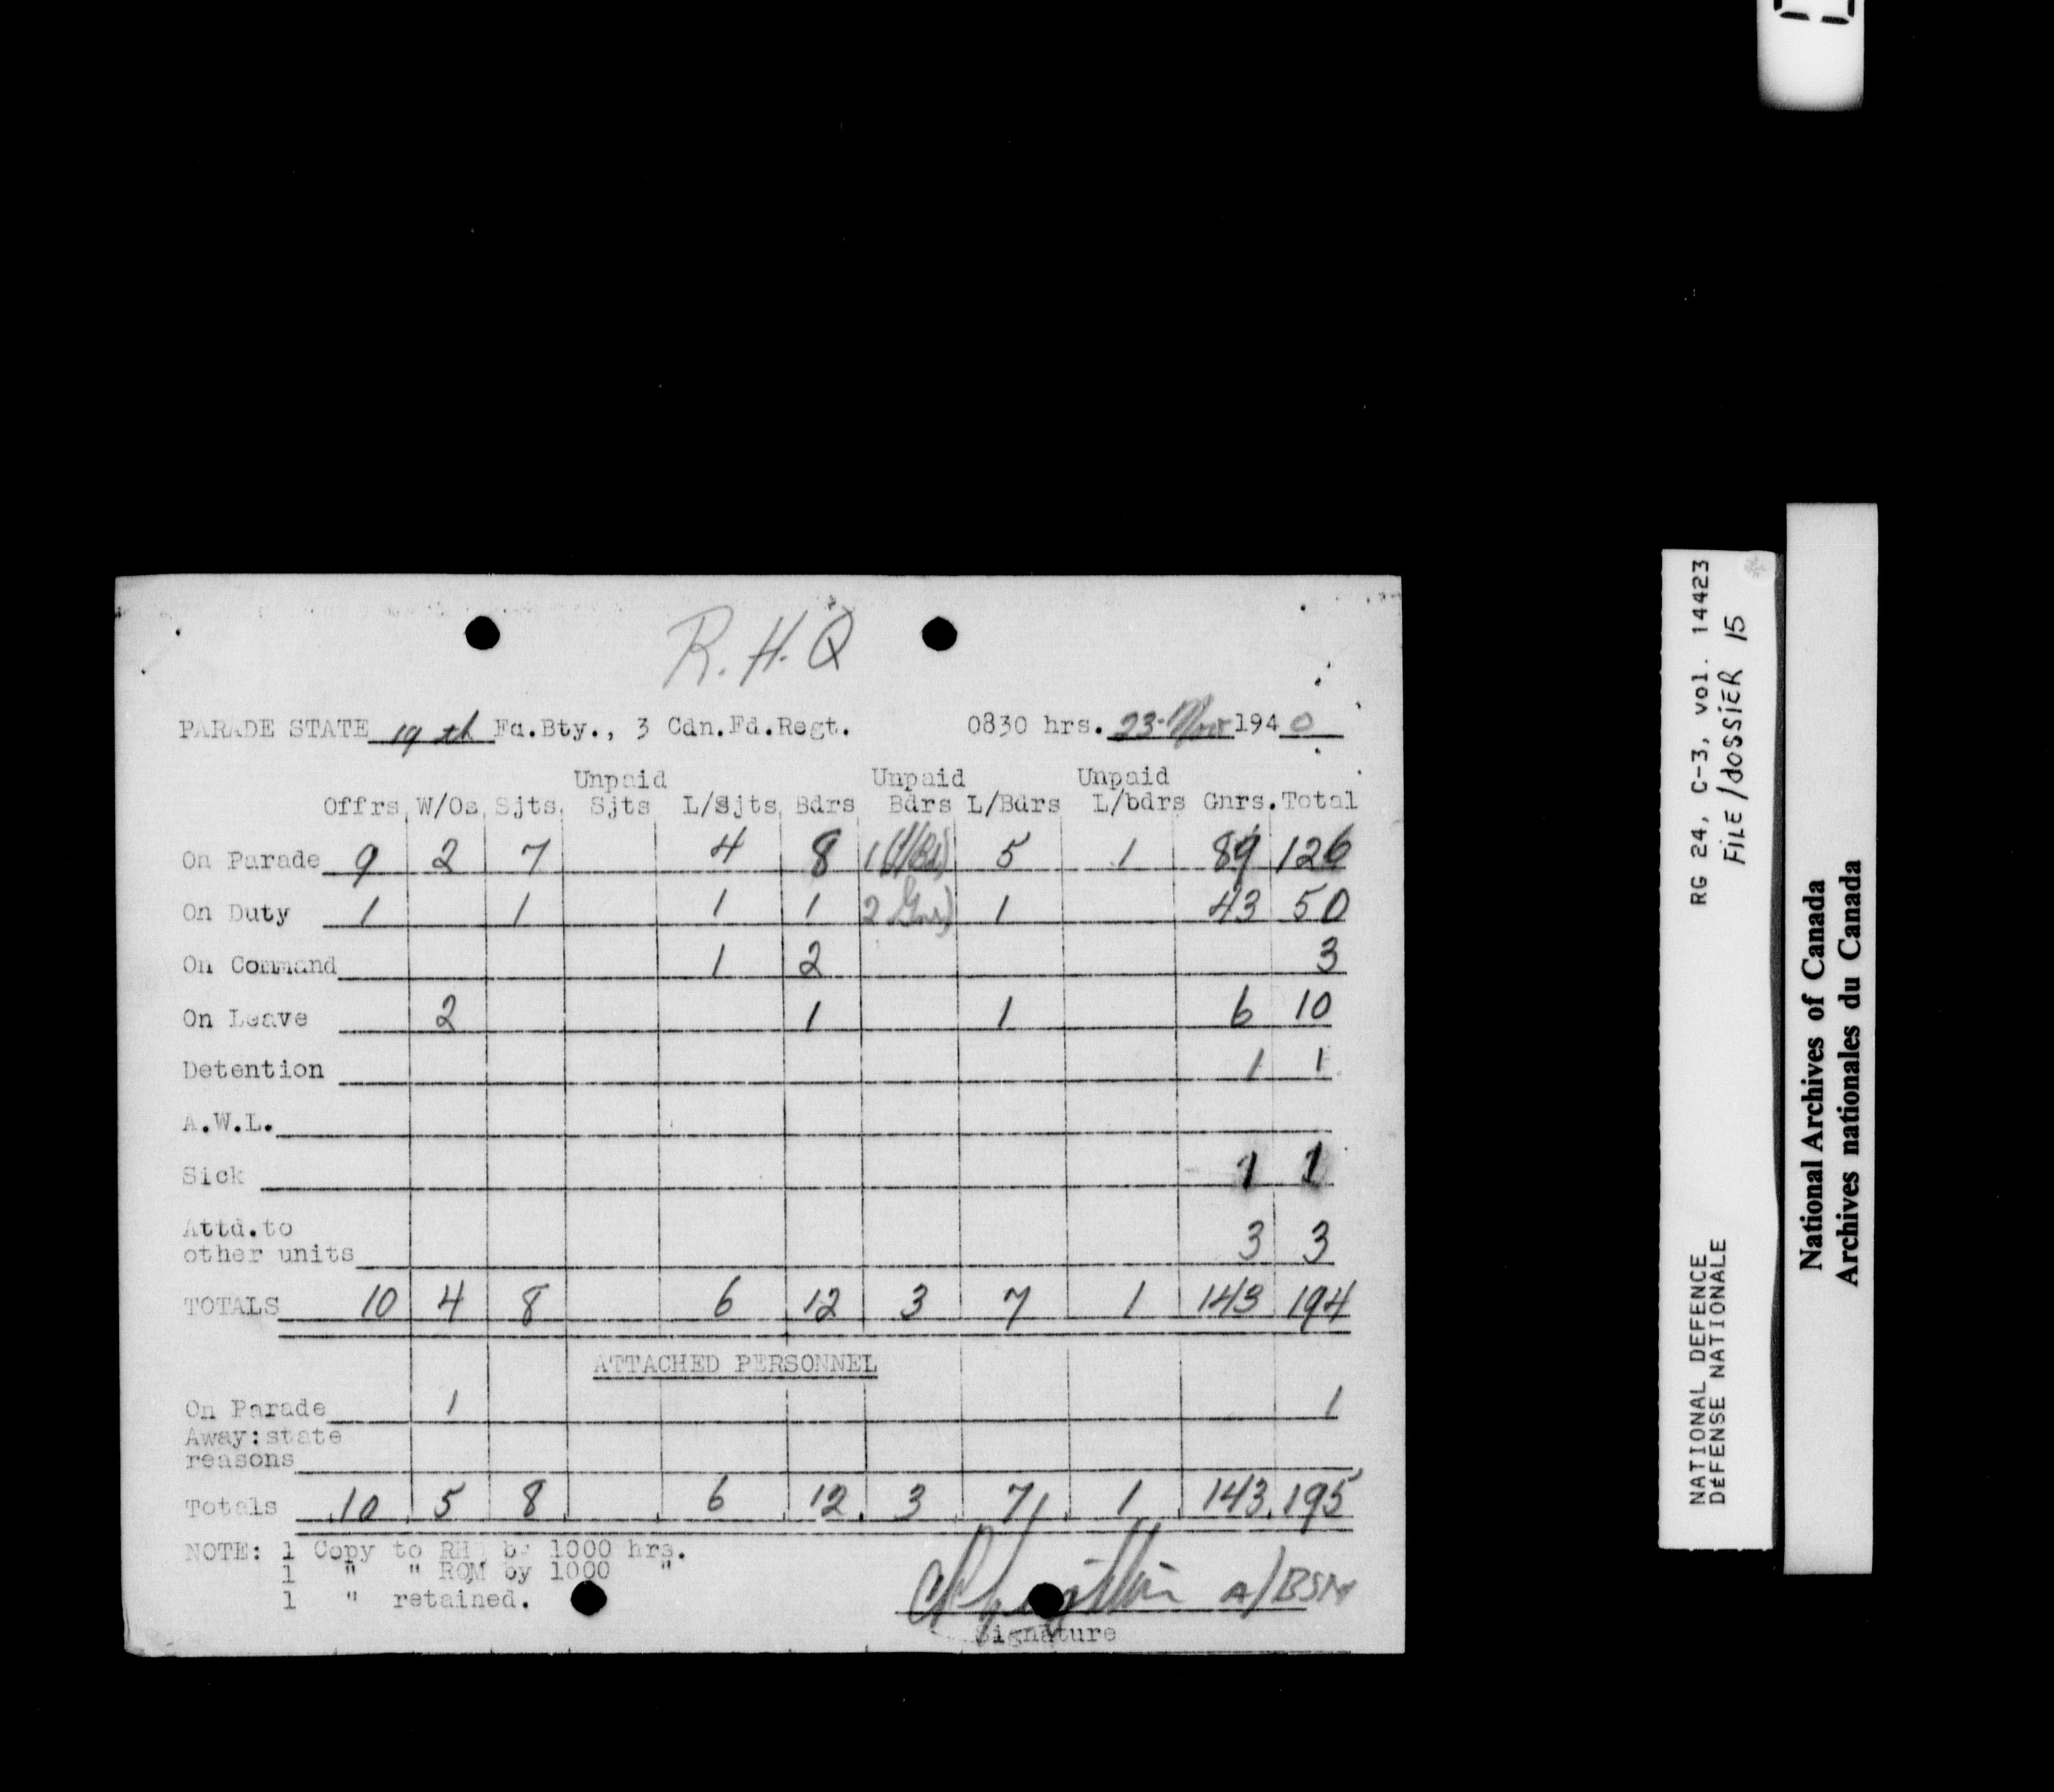 R.H.Q
PARADE STATE 19th Fd.Bty., 3 Cdn.Fd.Regt. 0830 hrs. 23-Nov 1940
Unpaid Unpaid Unpaid
Offrs W/Os Sjts Sjts L/Sjts Bdrs Bdrs L/Bdrs L/bdrs Gnrs. Total
On Parade 9 2 7 4 8 1 5 1 89 126
On Duty 1 1 1 1 2 Gnrs) 1 43 50
On Command 1 2 3
On Leave 2 1 1 6 10
Detention 1 1
A.W.L.
Sick 1 1
Attd.to
other units 3 3
TOTALS 10 4 8 6 12 3 7 1 143 194
ATTACHED PERSONNEL
On Parade 1 1
Away:state
reasons
Totals 10 5 8 6 12 3 7 1 143 195
NOTE: 1 Copy to RH by 1000 hrs.
1 " " RQM by 1000 "
1 " retained.
A/BSM
Signature
RG 24, C-3, vol. 14423
FILE/dOSSiER 15
NATIONAL DEFENCE
DéFENSE NATIONALE
National Archives of Canada
Archives nationales du Canada